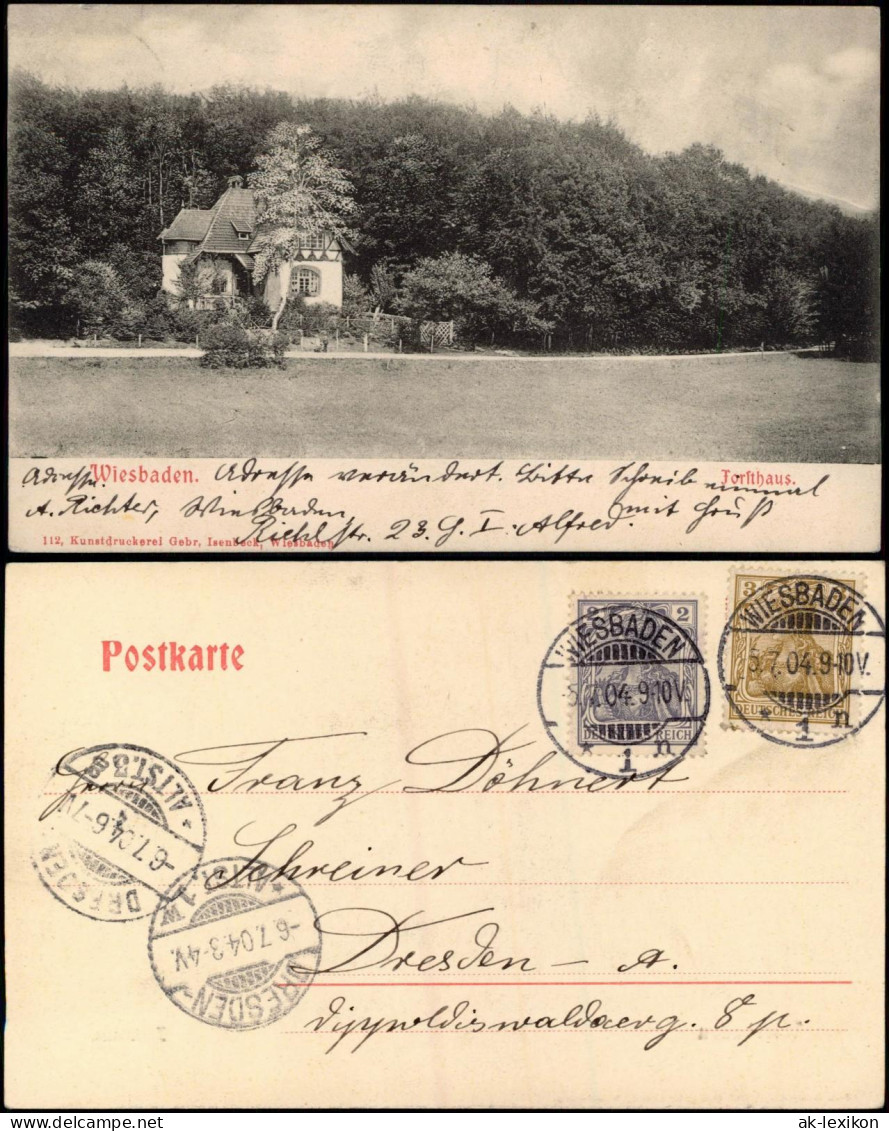 Adresse: Wiesbaden. Adresse verändert. Bitte Schreib einmal Forsthaus.
A. Richter, Wiesbaden mit Gruß
Riehl str. 23. G. I. Alfred.
112, Kunstdruckerei Gebr, Isenbeck, Wiesbaden
Postkarte
2 2
WIESBADEN
5.7.04.9-10V.
DEUTSCHES REICH
* 1 n
3
WIESBADEN
5.7.04.9-10V.
DEUTSCHES REICH
* 1 n
Herrn Franz Döhnert
Schreiner
Dresden – A.
Dippoldiswaldaerg. 8 p.
* ALTST. 3
-6.7.04.6-7V.
DRESDEN
* ALTST. 1 w
-6.7.04.3-4V.
DRESDEN-
ak-lexikon
ak-lexikon